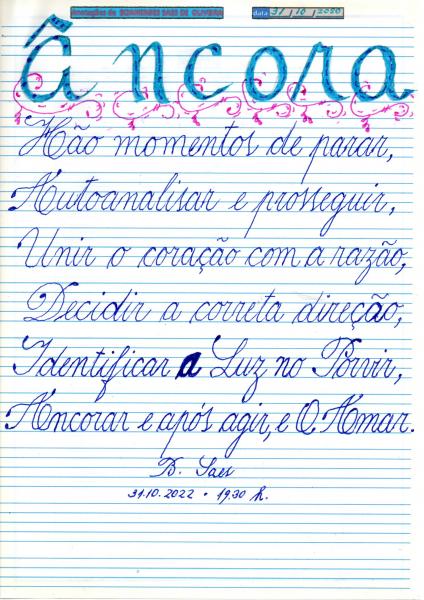 Anotações de BOANERGES SAES DE OLIVEIRA data 31 / 10 / 2020
Âncora
Hão momentos de parar,
Autoanalisar e prosseguir,
Unir o coração com a razão,
Decidir a correta direção,
Identificar a Luz no Porvir,
Ancorar e após agir, e O Amar.
B. Saes
31.10.2022 • 19,30 h.